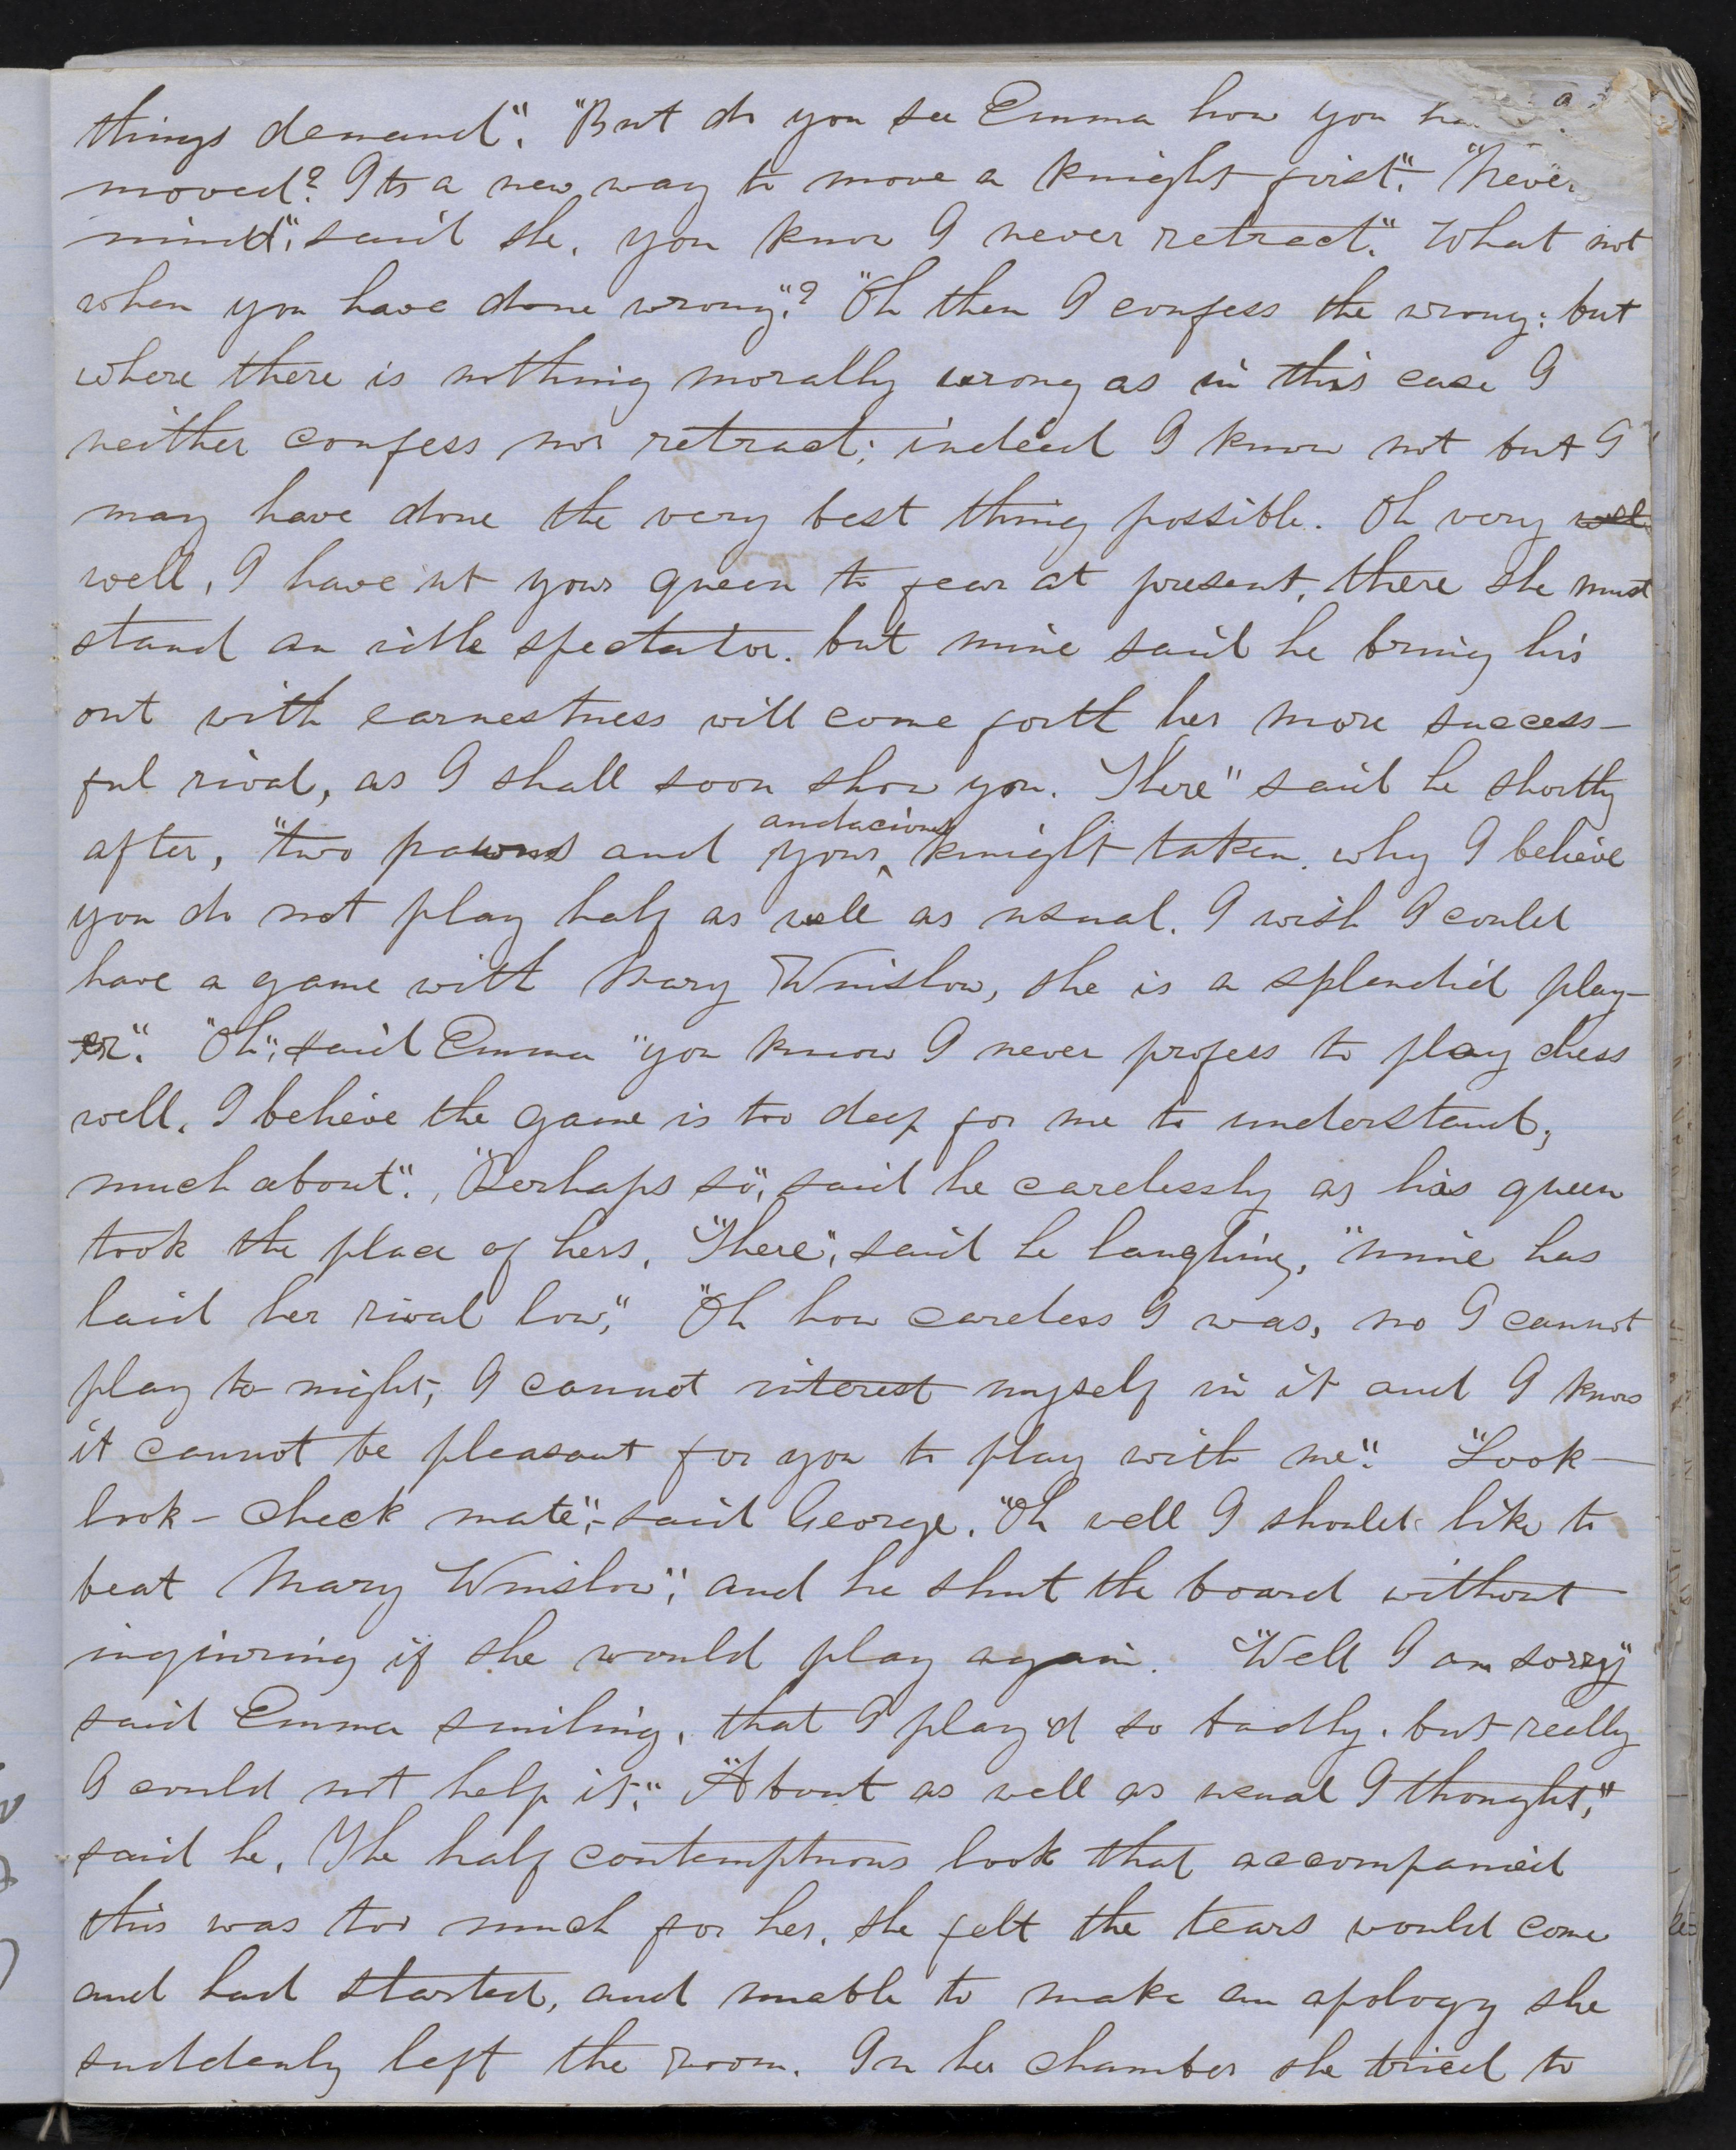 things demand". "But do you see Emma how you
moved? Its a new way to move a knight first". "Never
mind", said she, you know I never retract". What not
when you have done wrong"? "Oh then I confess the wrong: but
where there is nothing morally wrong as in this case I
neither confess nor retract; indeed I know not but I
may have done the very best thing possible. Oh very well
well, I have'nt your queen to fear at present, there she must
stand an idle spectator. but mine said he bring his
out with earnestness will come forth her more success-
ful rival, as I shall soon show you. There" said he shortly
after, "two pawns and your audacious knight taken. why I believe
you do not play half as well as usual. I wish I could
have a game with Mary Winslow, she is a splendid play-
er". "Oh", said Emma "you know I never profess to play chess
well. I believe the game is too deep for me to understand,
much about". "Perhaps so", said he carelessly as his queen
took the place of hers. "There", said he laughing, "mine has
laid her rival low," "Oh how careless I was, no I cannot
play to-night, I cannot interest myself in it and I know
it cannot be pleasant for you to play with me". "Look—
look - check mate",- said George. "Oh well I should like to
beat Mary Winslow", and he shut the board without
inqiuring if she would play again. "Well I am sorry"
said Emma smiling, that I play'd so badly. but really
I could not help it". "About as well as usual I thought,"
said he. The half contemptuous look that accompanied
this was too much for her, she felt the tears would come
and had started, and unable to make an apology she
suddenly left the room. In her chamber she tried to